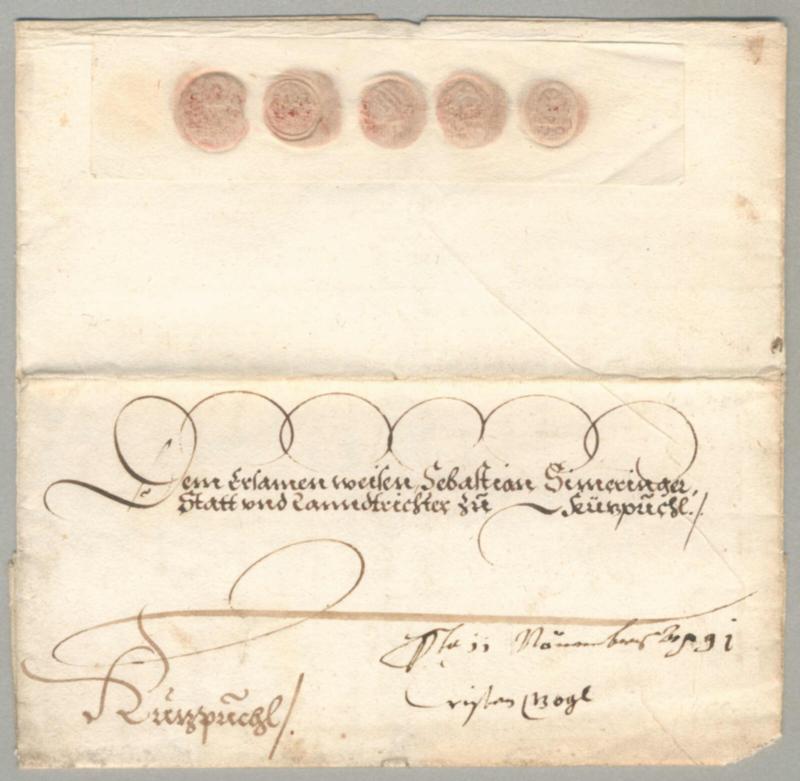 Dem Ersamen weisen Sebastian Simeringer,
Statt vnd Lanndtrichter zů Kützpůchl./.
11 Nouembris 1591
Cristan Vogl
Kützpůchl/.